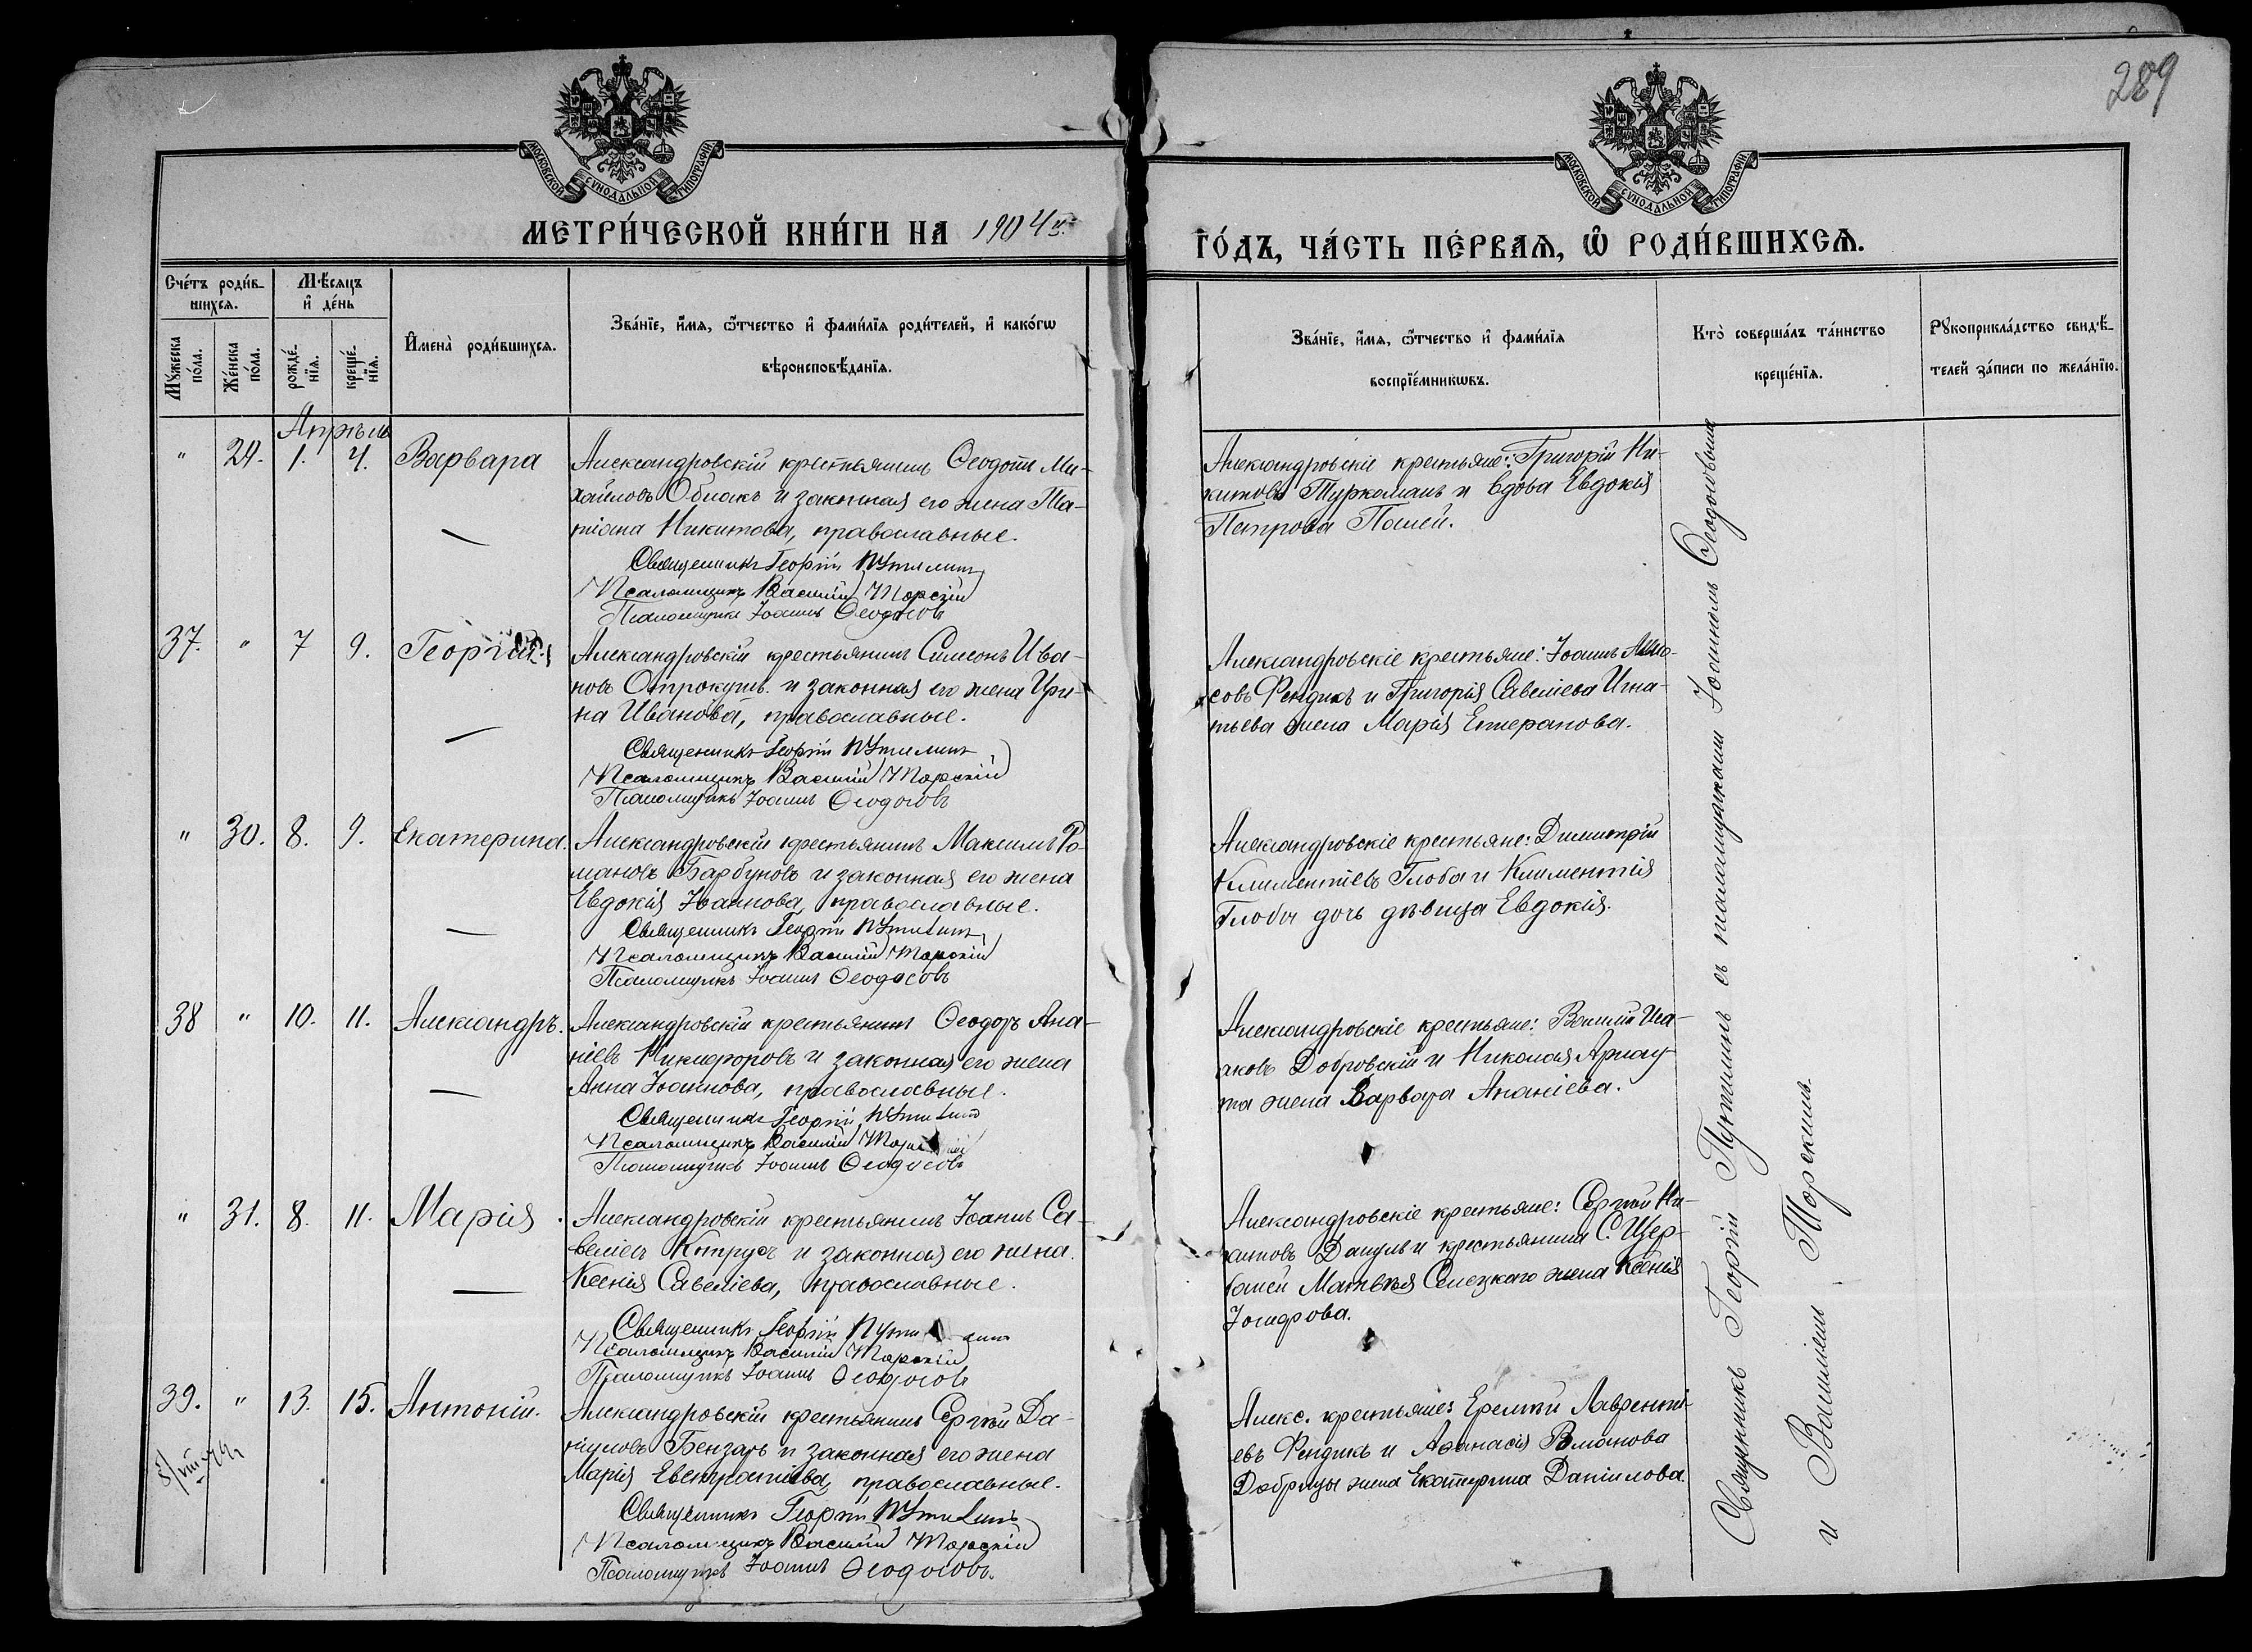 289
МОСКОВСКОЙ СУНОДАЛЬНОЙ ТИПОГРАФІИ
МОСКОВСКОЙ СУНОДАЛЬНОЙ ТИПОГРАФІИ
МЕТРИ́ЧЕСКОЙ КНИ́ГИ НА 1904 г.
ГО́ДЪ, ЧА́СТЬ ПЕ́РВАѦ, Ѡ҆ РОДИ́ВШИХСѦ.
Сче́тъ роди́в-
шихсѧ.
Мꙋ́жеска по́ла.
Же́нска по́ла.
Мѣ́сяцъ и҆ де́нь
рожде́-нїѧ.
креще́-нїѧ.
И҆мена̀ роди́вшихсѧ.
Зва́нїе, и҆́мѧ, ѻ҆́тчество и҆ фами́лїѧ роди́телей, и҆ како́гѡ
вѣроисповѣ́данїѧ.
Зва́нїе, и҆́мѧ, ѻ҆́тчество и҆ фами́лїѧ
воспрїе́мникѡвъ.
Кто̀ соверша́лъ та́инство
креще́нїѧ.
Рꙋкоприкла́дство свидѣ́-
телей за́писи по жела́нїю.
Апрѣль
" 29. 1. 4. Варвара
Александровскій крестьянинъ Ѳеодотъ Ми-
хайловъ Обліакъ и законная его жена Та-
тіана Никитова, православные.
Священникъ Георгій Путилинъ
Псаломщикъ Василій Торскій
Псаломщикъ Іоаннъ Ѳеодосовъ
Александровскіе крестьяне: Григорій Ни-
китовъ Туркоманъ и вдова Евдокія
Петрова Палей.
37. " 7 9. Георгій.
Александровскій крестьянинъ Симеонъ Ива-
новъ и законная его жена Ири-
на Иванова, православные.
Священникъ Георгій Путилинъ
Псаломщикъ Василій Торскій
Псаломщикъ Іоаннъ Ѳеодосовъ
Александровскіе крестьяне: Іоаннъ
совъ Фендикъ и Григорія Савеліева Игна-
тьева жена Марія
" 30. 8. 9. Екатерина.
Александровскій крестьянинъ Максимъ Ро-
мановъ Барбуновъ и законная его жена
Евдокія Іоаннова, православные.
Священникъ Георгій Путилинъ
Псаломщикъ Василій Торскій
Псаломщикъ Іоаннъ Ѳеодосовъ
Александровскіе крестьяне: Димитрій
Климентіевъ Глоба и Климентія
Глобы дочь дѣвица Евдокія.
38 " 10. 11. Александръ.
Александровскій крестьянинъ Ѳеодоръ Ана-
ніевъ Никифоровъ и законная его жена
Анна Іоаннова, православные.
Священникъ Георгій Путилинъ
Псаломщикъ Василій Торскій
Псаломщикъ Іоаннъ Ѳеодосовъ
Александровскіе крестьяне: Василій Иса-
аковъ Добровскій и Николая Арнау-
та жена Варвара Ананіева.
" 31. 8. 11. Марія.
Александровскій крестьянинъ Іоаннъ Са-
веліевъ и законная его жена
Ксенія Савеліева, православные.
Священникъ Георгій Путилинъ
Псаломщикъ Василій Торскій
Псаломщикъ Іоаннъ Ѳеодосовъ
Александровскіе крестьяне: Сергій Ни-
китовъ Данулъ и крестьянина С. Щер-
баней Матвѣя Селезкаго жена Ксенія
39. " 13. 15. Антоній.
Александровскій крестьянинъ Сергій Да-
ніиловъ Бензарь и законная его жена
Марія православные.
Священникъ Георгій Путилинъ
Псаломщикъ Василій Торскій
Псаломщикъ Іоаннъ Ѳеодосовъ.
Алекс. крестьяне: Еремій Лавренті-
евъ Фендикъ и Аѳанасія
Добрицы жена Екатерина Даніилова.
Священникъ Георгій Путилинъ съ псаломщиками Іоанномъ Ѳеодосовымъ
и Василіемъ Торскимъ.